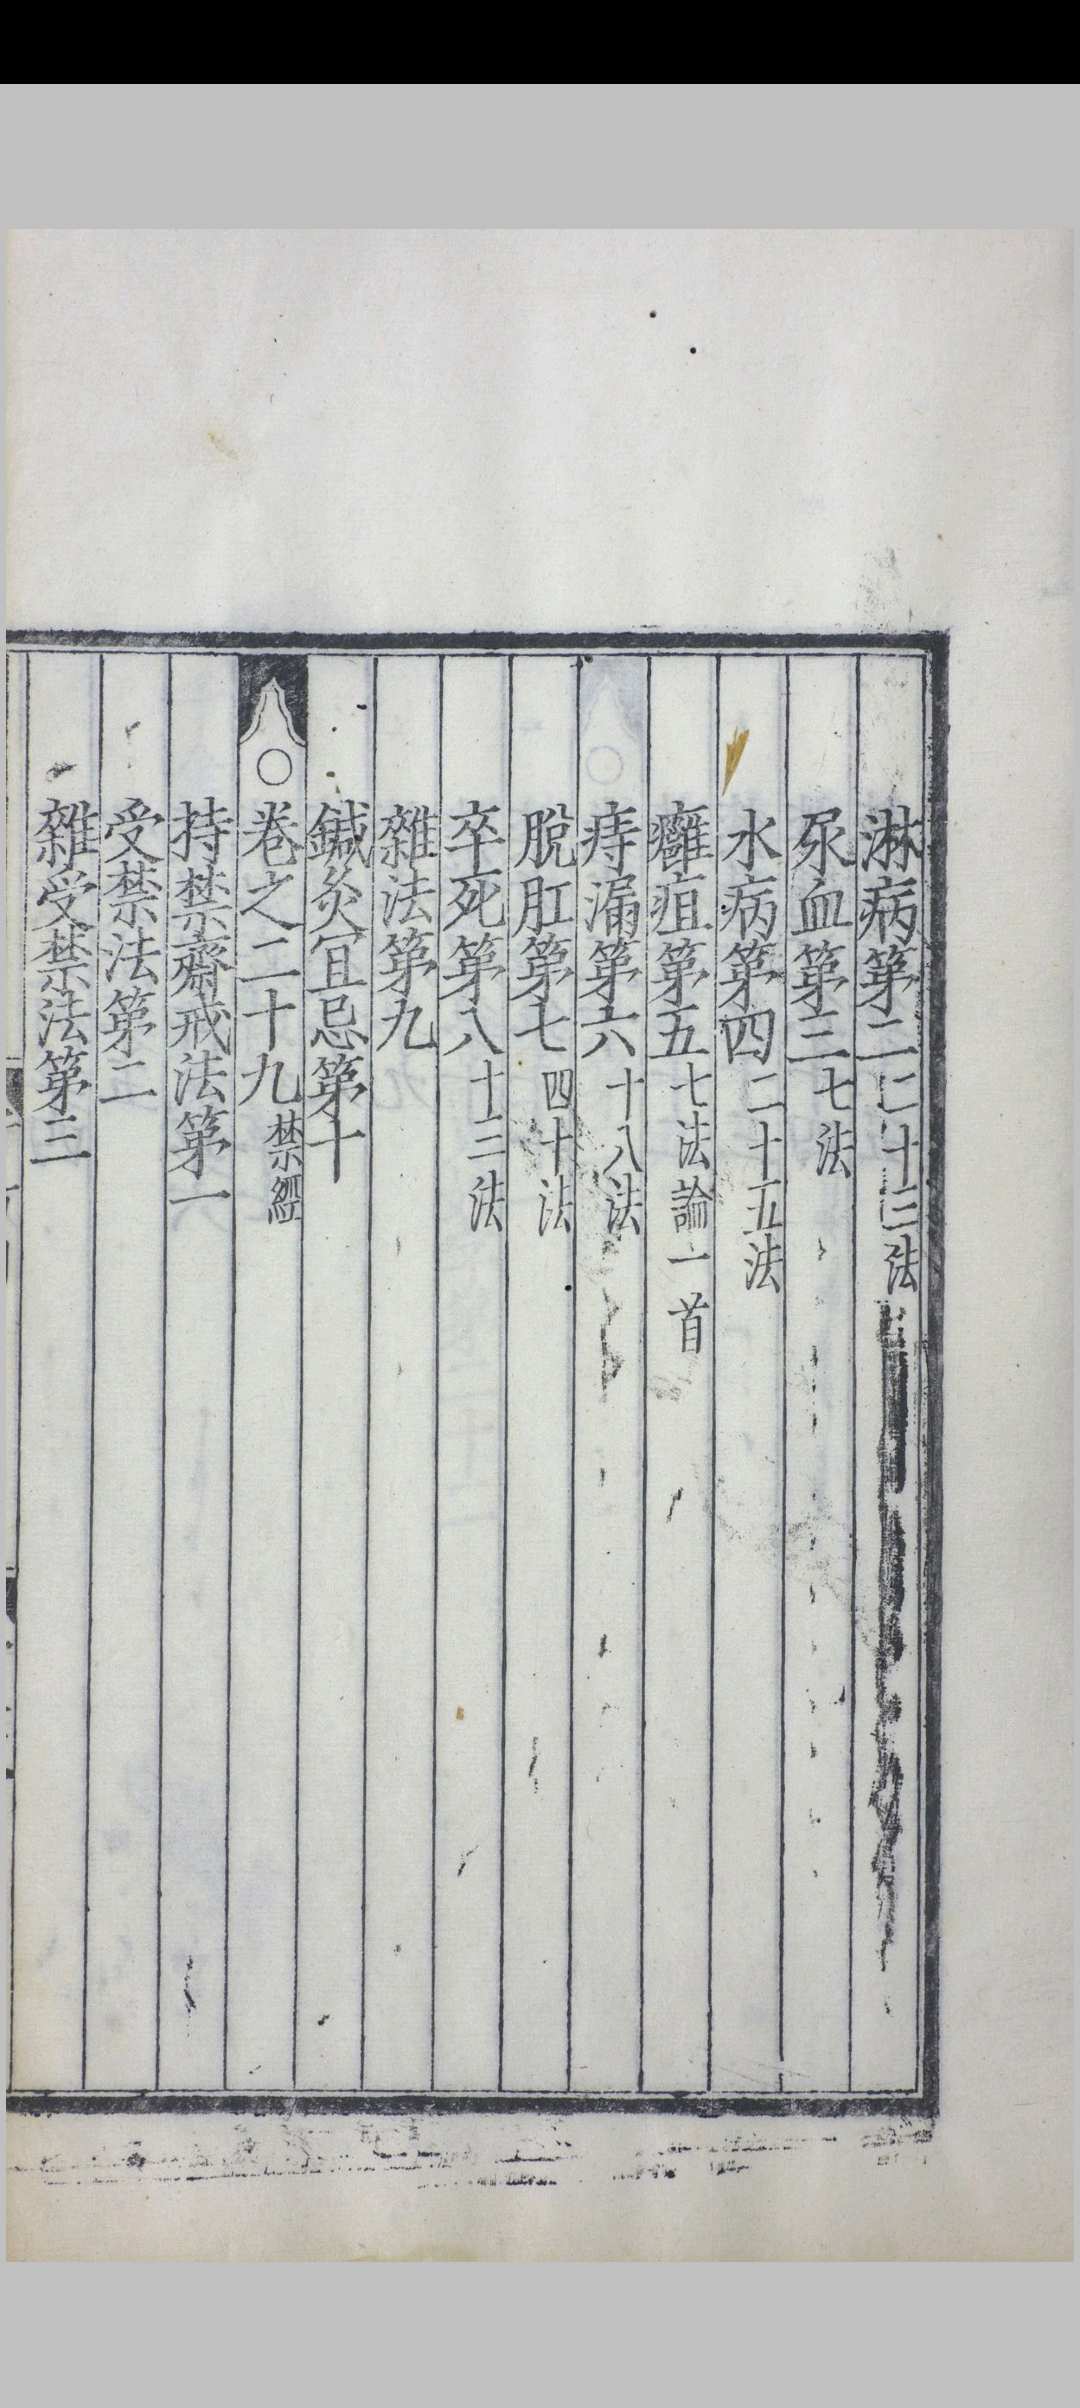 淋病第二二十三法
尿血第三七法
水病第四二十五法
癰疽第五七法論一首
痔漏第六十八法
脫肛第七四十法
卒死第八十三法
雜法第九
鍼灸宜忌第十
○卷之二十九禁經
持禁齋戒法第一
受禁法第二
雜受禁法第三